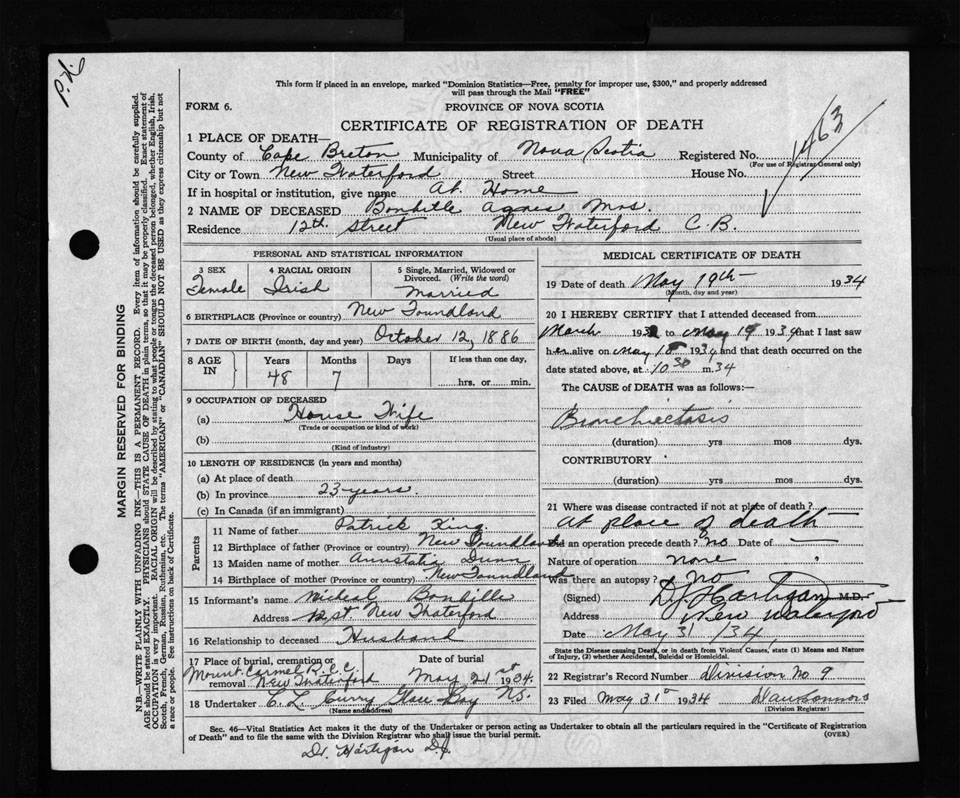 P.N.
This form if placed in an envelope, marked "Dominion Statistics—Free, penalty for improper use, $300," and properly addressed
will pass through the Mail "FREE"
FORM 6.
PROVINCE OF NOVA SCOTIA
CERTIFICATE OF REGISTRATION OF DEATH
1463
1 PLACE OF DEATH—
County of Cape Breton Municipality of Nova Scotia Registered No.
(For use of Registrar General only)
City or Town New Waterford Street House No.
If in hospital or institution, give name At Home
2 NAME OF DECEASED Bonhille Agnes Mrs.
Residence 12th. Street New Waterford C.B.
(Usual place of abode)
PERSONAL AND STATISTICAL INFORMATION
3 SEX
Female
4 RACIAL ORIGIN
Irish
5 Single, Married, Widowed or
Divorced. (Write the word)
Married
6 BIRTHPLACE (Province or country) New Foundland
7 DATE OF BIRTH (month, day and year) October 12, 1886
8 AGE
IN
Years
48
Months
7
Days
If less than one day,
hrs. or min.
9 OCCUPATION OF DECEASED
(a) House Wife
(Trade or occupation or kind of work)
(b)
(Kind of industry)
10 LENGTH OF RESIDENCE (in years and months)
(a) At place of death
(b) In province 23 years.
(c) In Canada (if an immigrant)
Parents
11 Name of father Patrick King
12 Birthplace of father (Province or country) New Foundland
13 Maiden name of mother Annstatia Dunn
14 Birthplace of mother (Province or country) New Foundland
15 Informant's name Micheal Bonhille
Address 12 st. New Waterford
16 Relationship to deceased Husband
17 Place of burial, cremation or
removal Mount Carmel R.C.C. New Waterford
Date of burial
May 21st 1934.
18 Undertaker C. L. Curry Glace Bay N.S.
(Name and address)
MEDICAL CERTIFICATE OF DEATH
19 Date of death May 19th 1934
(Month, day and year)
20 I HEREBY CERTIFY that I attended deceased from
March 193 to May 19 1934 that I last saw
her alive on May 18 1934 and that death occurred on the
date stated above, at 10.30 m. 34
The CAUSE OF DEATH was as follows:—
Bronchiectasis
(duration) yrs mos dys.
CONTRIBUTORY
(duration) yrs. mos. dys.
21 Where was disease contracted if not at place of death?
At place of death
Did an operation precede death? No Date of
Nature of operation none
Was there an autopsy? no
(Signed) D J Hartigan M.D.
Address New Waterford
Date May 31 / 34
State the Disease causing Death, or in death from Violent Causes, state (1) Means and Nature
of Injury, (2) whether Accidental, Suicidal or Homicidal.
22 Registrar's Record Number Division No 9
23 Filed May 31st 1934 Dan Connors
(Division Registrar)
Sec. 46—Vital Statistics Act makes it the duty of the Undertaker or person acting as Undertaker to obtain all the particulars required in the "Certificate of Registration
of Death" and to file the same with the Division Registrar who shall issue the burial permit.
(OVER)
Dr. Hartigan D.J.
MARGIN RESERVED FOR BINDING
N.B.—WRITE PLAINLY WITH UNFADING INK—THIS IS A PERMANENT RECORD. Every item of information should be carefully supplied.
AGE should be stated EXACTLY. PHYSICIANS should STATE CAUSE OF DEATH in plain terms, so that it may be properly classified. Exact statement of
OCCUPATION is very important. RACIAL ORIGIN will be described by stating to what people or tongue the deceased person belonged, whether English, Irish,
Scotch, French, German, Russian, Ruthenian, etc. The terms "AMERICAN" or "CANADIAN" SHOULD NOT BE USED as they express citizenship but not
a race or people. See instructions on back of Certificate.